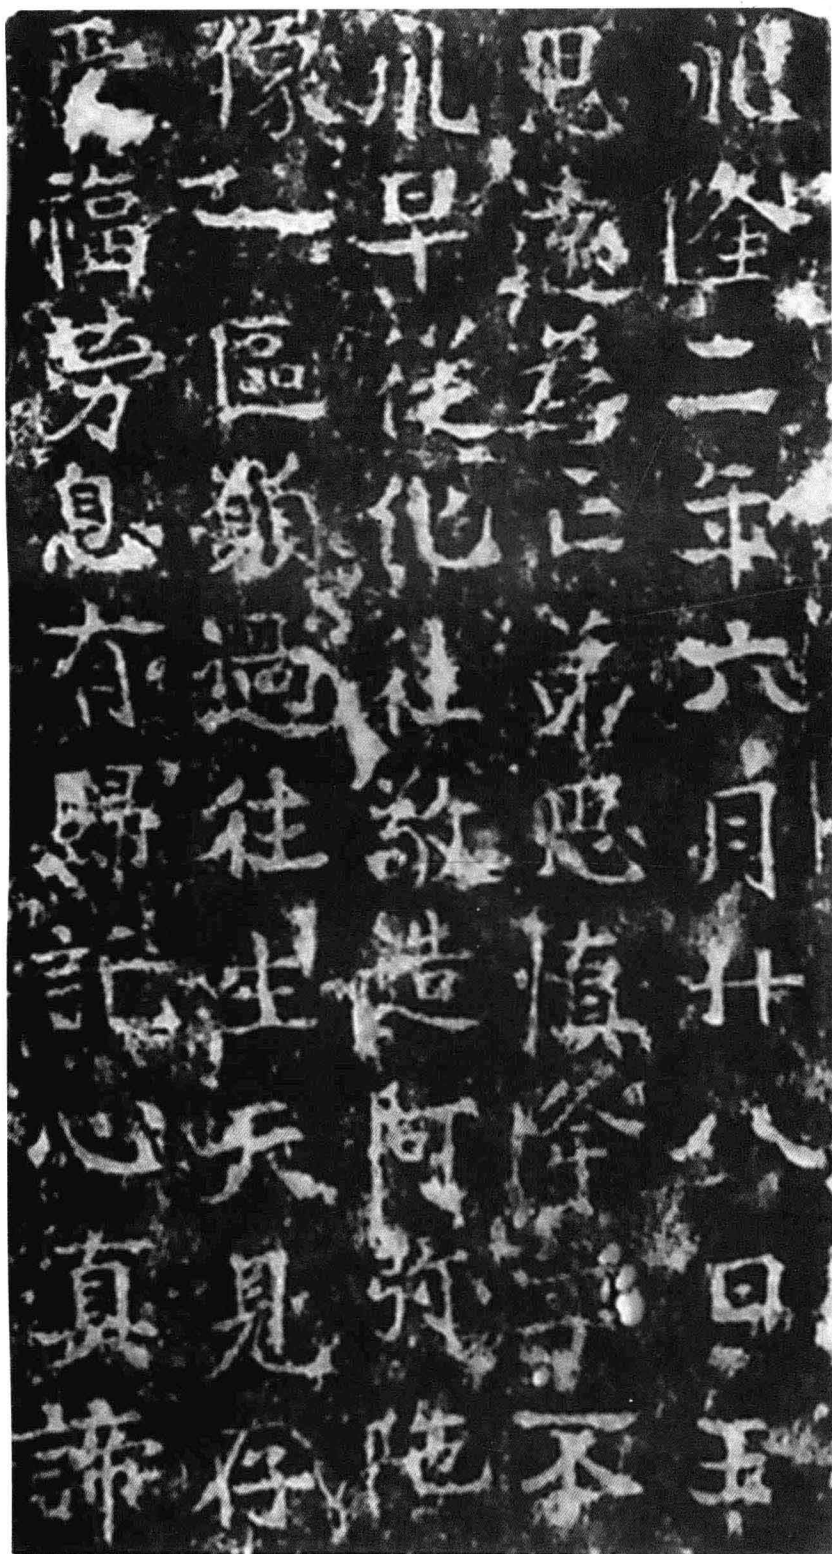 隆二年六月廿八日王
思為亡弟思慎降不
凡早從化往敬造阿弥陁
像一區願過往生天見仔
福劳息有歸記心真諦